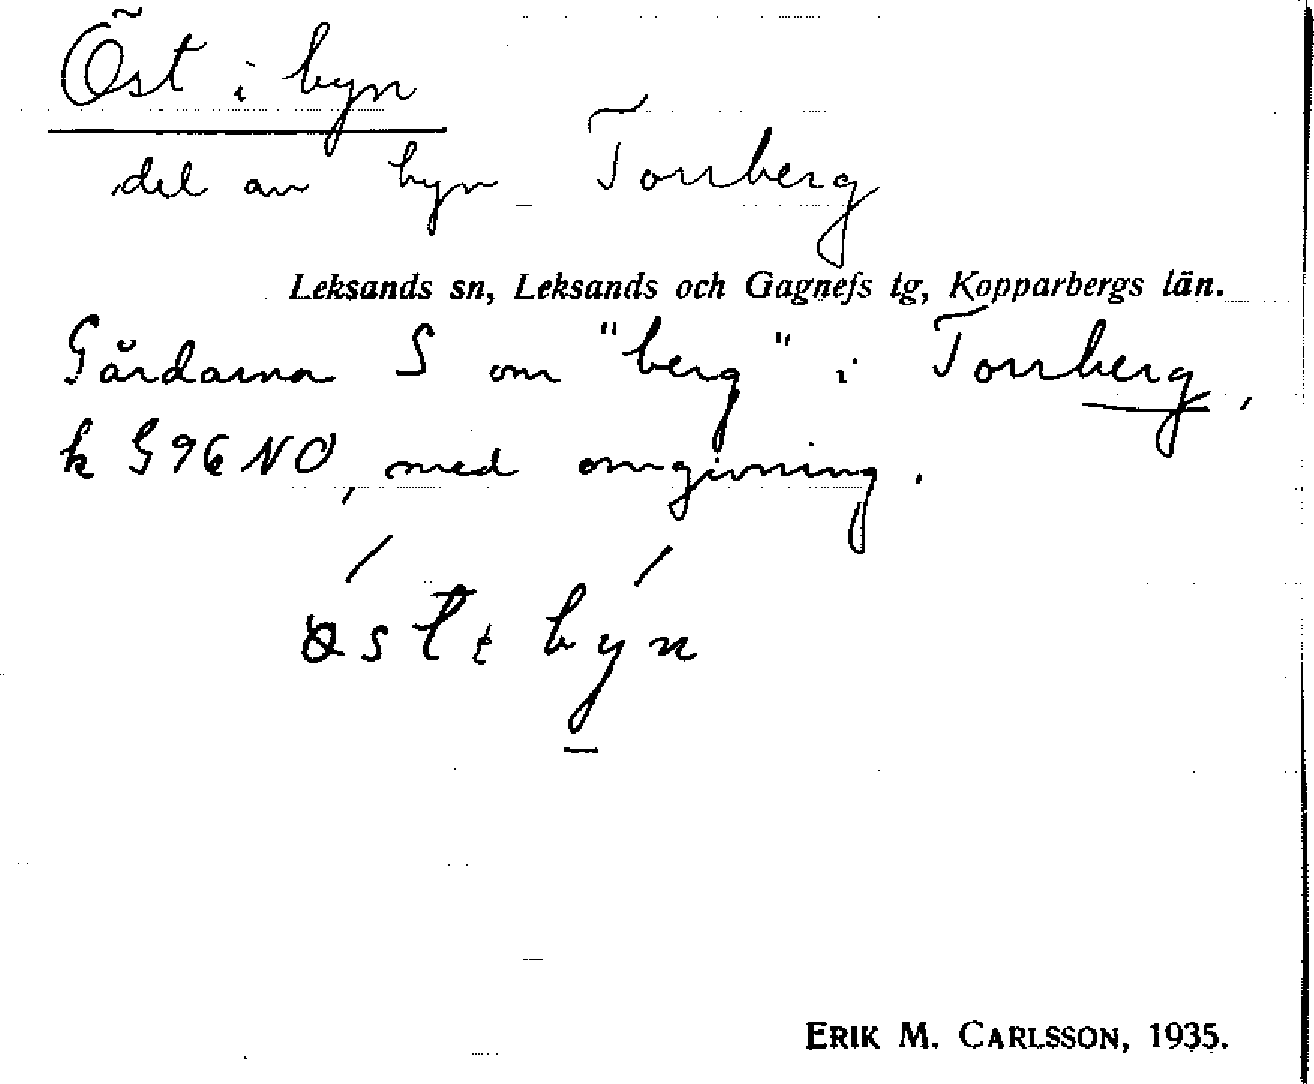 Öst i byn
del av byn Torrberg
Leksands sn, Leksands och Gagnefs tg, Kopparbergs län.
Gårdarna S om "berg" i Torrberg,
k G96 NO, med omgivning.
byn
ERIK M. CARLSSON, 1935.